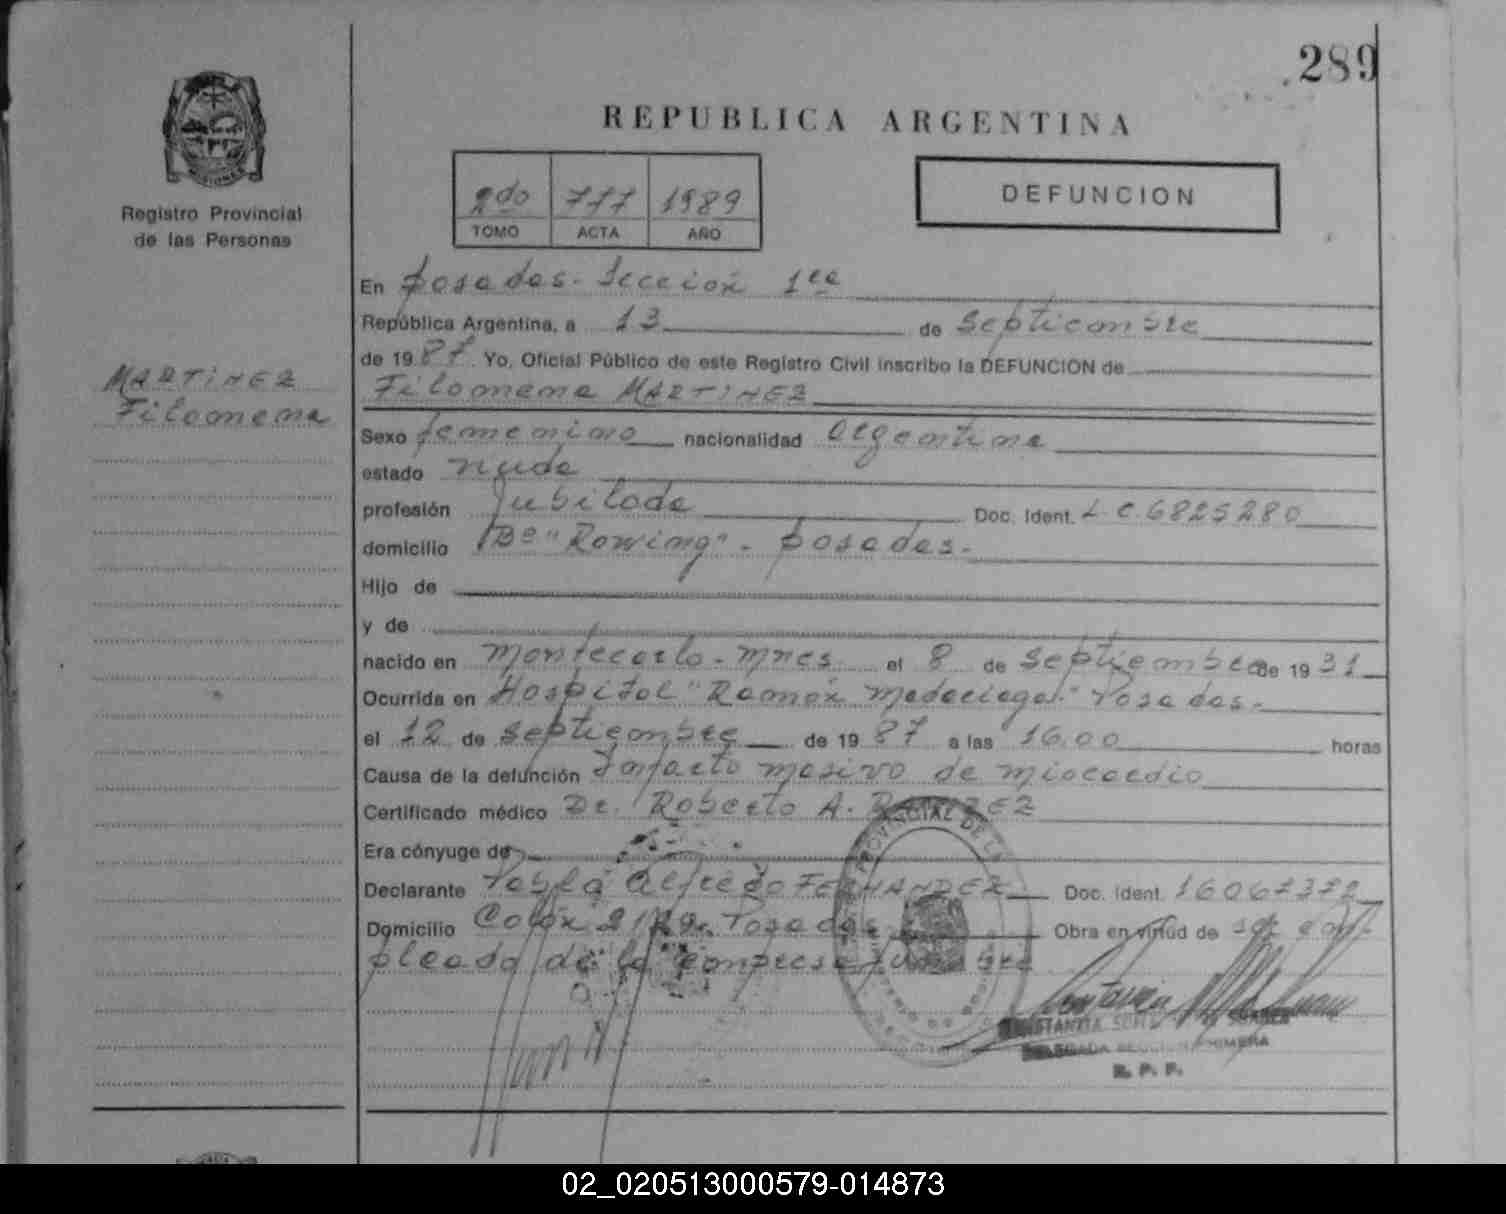 289
REPUBLICA ARGENTINA
DEFUNCION
2do 777 1989
TOMO ACTA AÑO
MISIONES
Registro Provincial
de las Personas
MARTINEZ
Filomena
En Posadas. Sección 1ra
República Argentina, a 13 de septiembre
de 1987. Yo, Oficial Público de este Registro Civil inscribo la DEFUNCION de
Filomena MARTINEZ
Sexo femenino nacionalidad argentina
estado viuda
profesión Jubilada Doc. Ident. L.C. 6825280
domicilio Bº "Rowing". Posadas.
Hijo de
y de
nacido en Montecarlo - Mnes el 8 de septiembre de 1931
Ocurrida en Hospital "Ramón Madariaga" Posadas.
el 12 de septiembre de 1987 a las 16.00 horas
Causa de la defunción Infarto masivo de miocardio
Certificado médico Dr. Roberto A.
Era cónyuge de
Declarante Pablo Alfredo FERNANDEZ Doc. Ident. 16067372
Domicilio Colón Posadas Obra en virtud de ser em-
pleado de la empresa fúnebre
PROVINCIAL DE LA
SECCION PRIMERA
R. P. P.
02_020513000579-014873